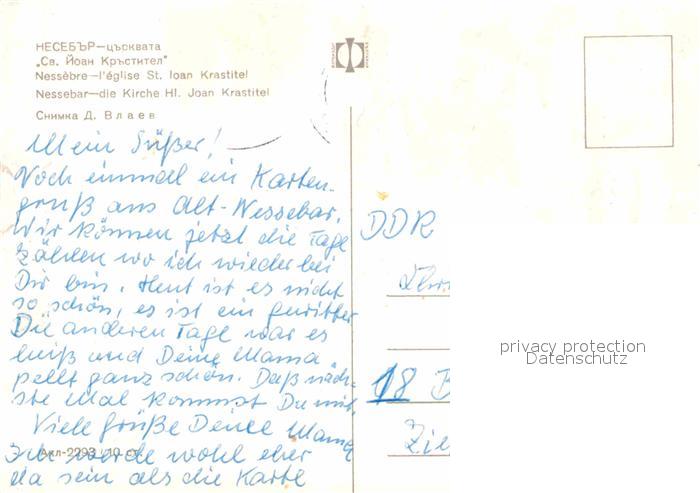 НЕСЕБЪР—църквата
„Св. Йоан Кръстител"
Nessèbre—l'église St. Ioan Krastitel
Nessebar—die Kirche Hl. Joan Krastitel
Снимка Д. Влаев
Mein Süßer!
Noch einmal ein Karten-
gruß aus Alt-Nessebar.
Wir können jetzt die Tage
zählen wo ich wieder bei
Dir bin. Heut ist es nicht
so schön, es ist ein gewitter
Die anderen Tage war es
heiß und Deine Mama
pellt ganz schön. Daß näch-
ste Mal kommst Du mit.
Viele grüße Deine Mama
Ich werde wohl eher
da sein als die Karte
Акл-2293/10 ст.
DDR
18 B
Zie
privacy protection
Datenschutz